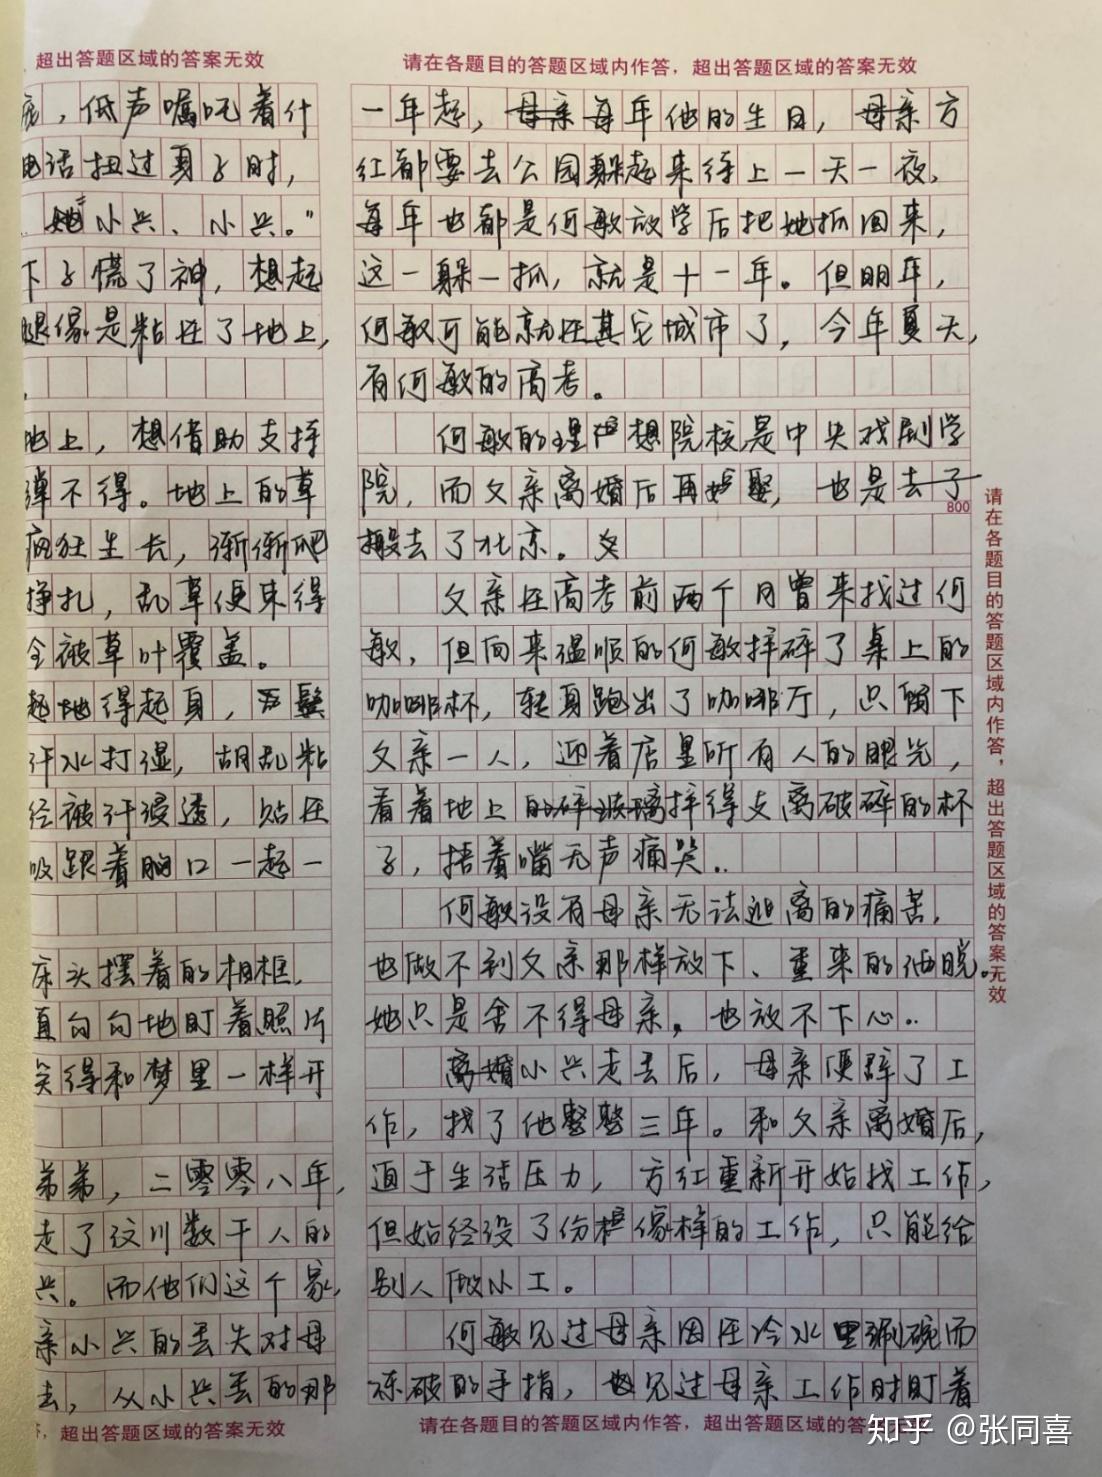 超出答题区域的答案无效
，低声嘱咐着什
电话扭过身子时，
她小兴、小兴。”
下子慌了神，想起
腿像是粘在了地上，
地上，想借助支撑
弹不得。地上的草
疯狂生长，渐渐把
挣扎，乱草便束得
全被草叶覆盖。
起地得起身，发鬓
汗水打湿，胡乱粘
经被汗浸透，贴在
吸跟着胸口一起一
床头摆着的相框，
直勾勾地盯着照片
笑得和梦里一样开
弟弟，二零零八年，
走了汶川数千人的
兴。而他们这个家，
亲小兴的丢失对母
去，从小兴丢的那
，超出答题区域的答案无效
请在各题目的答题区域内作答，超出答题区域的答案无效
一年起，母亲每年他的生日，母亲方
红都要去公园躲起来待上一天一夜，
每年也都是何敏放学后把她抓回来，
这一躲一抓，就是十一年。但明年，
何敏可能就在其它城市了，今年夏天，
有何敏的高考。
何敏的理想院校是中央戏剧学
院，而父亲离婚后再娶，也是去了
800
搬去了北京。父
父亲在高考前两个月曾来找过何
敏，但向来温顺的何敏摔碎了桌上的
咖啡杯，转身跑出了咖啡厅，只留下
父亲一人，迎着店里所有人的眼光，
看着地上的碎玻璃摔得支离破碎的杯
子，捂着嘴无声痛哭..
何敏没有母亲无法逃离的痛苦，
也做不到父亲那样放下、重来的洒脱。
她只是舍不得母亲，也放不下心..
离婚小兴走丢后，母亲便辞了工
作，找了他整整三年。和父亲离婚后，
迫于生活压力，方红重新开始找工作，
但始终没了份像样的工作，只能给
别人做小工。
何敏见过母亲因在冷水里涮碗而
冻破的手指，也见过母亲工作时盯着
请在各题目的答题区域内作答，超出答题区域的答案无效
请在各题目的答题区域内作答，超出答题区域的答案无效
知乎 @张同喜